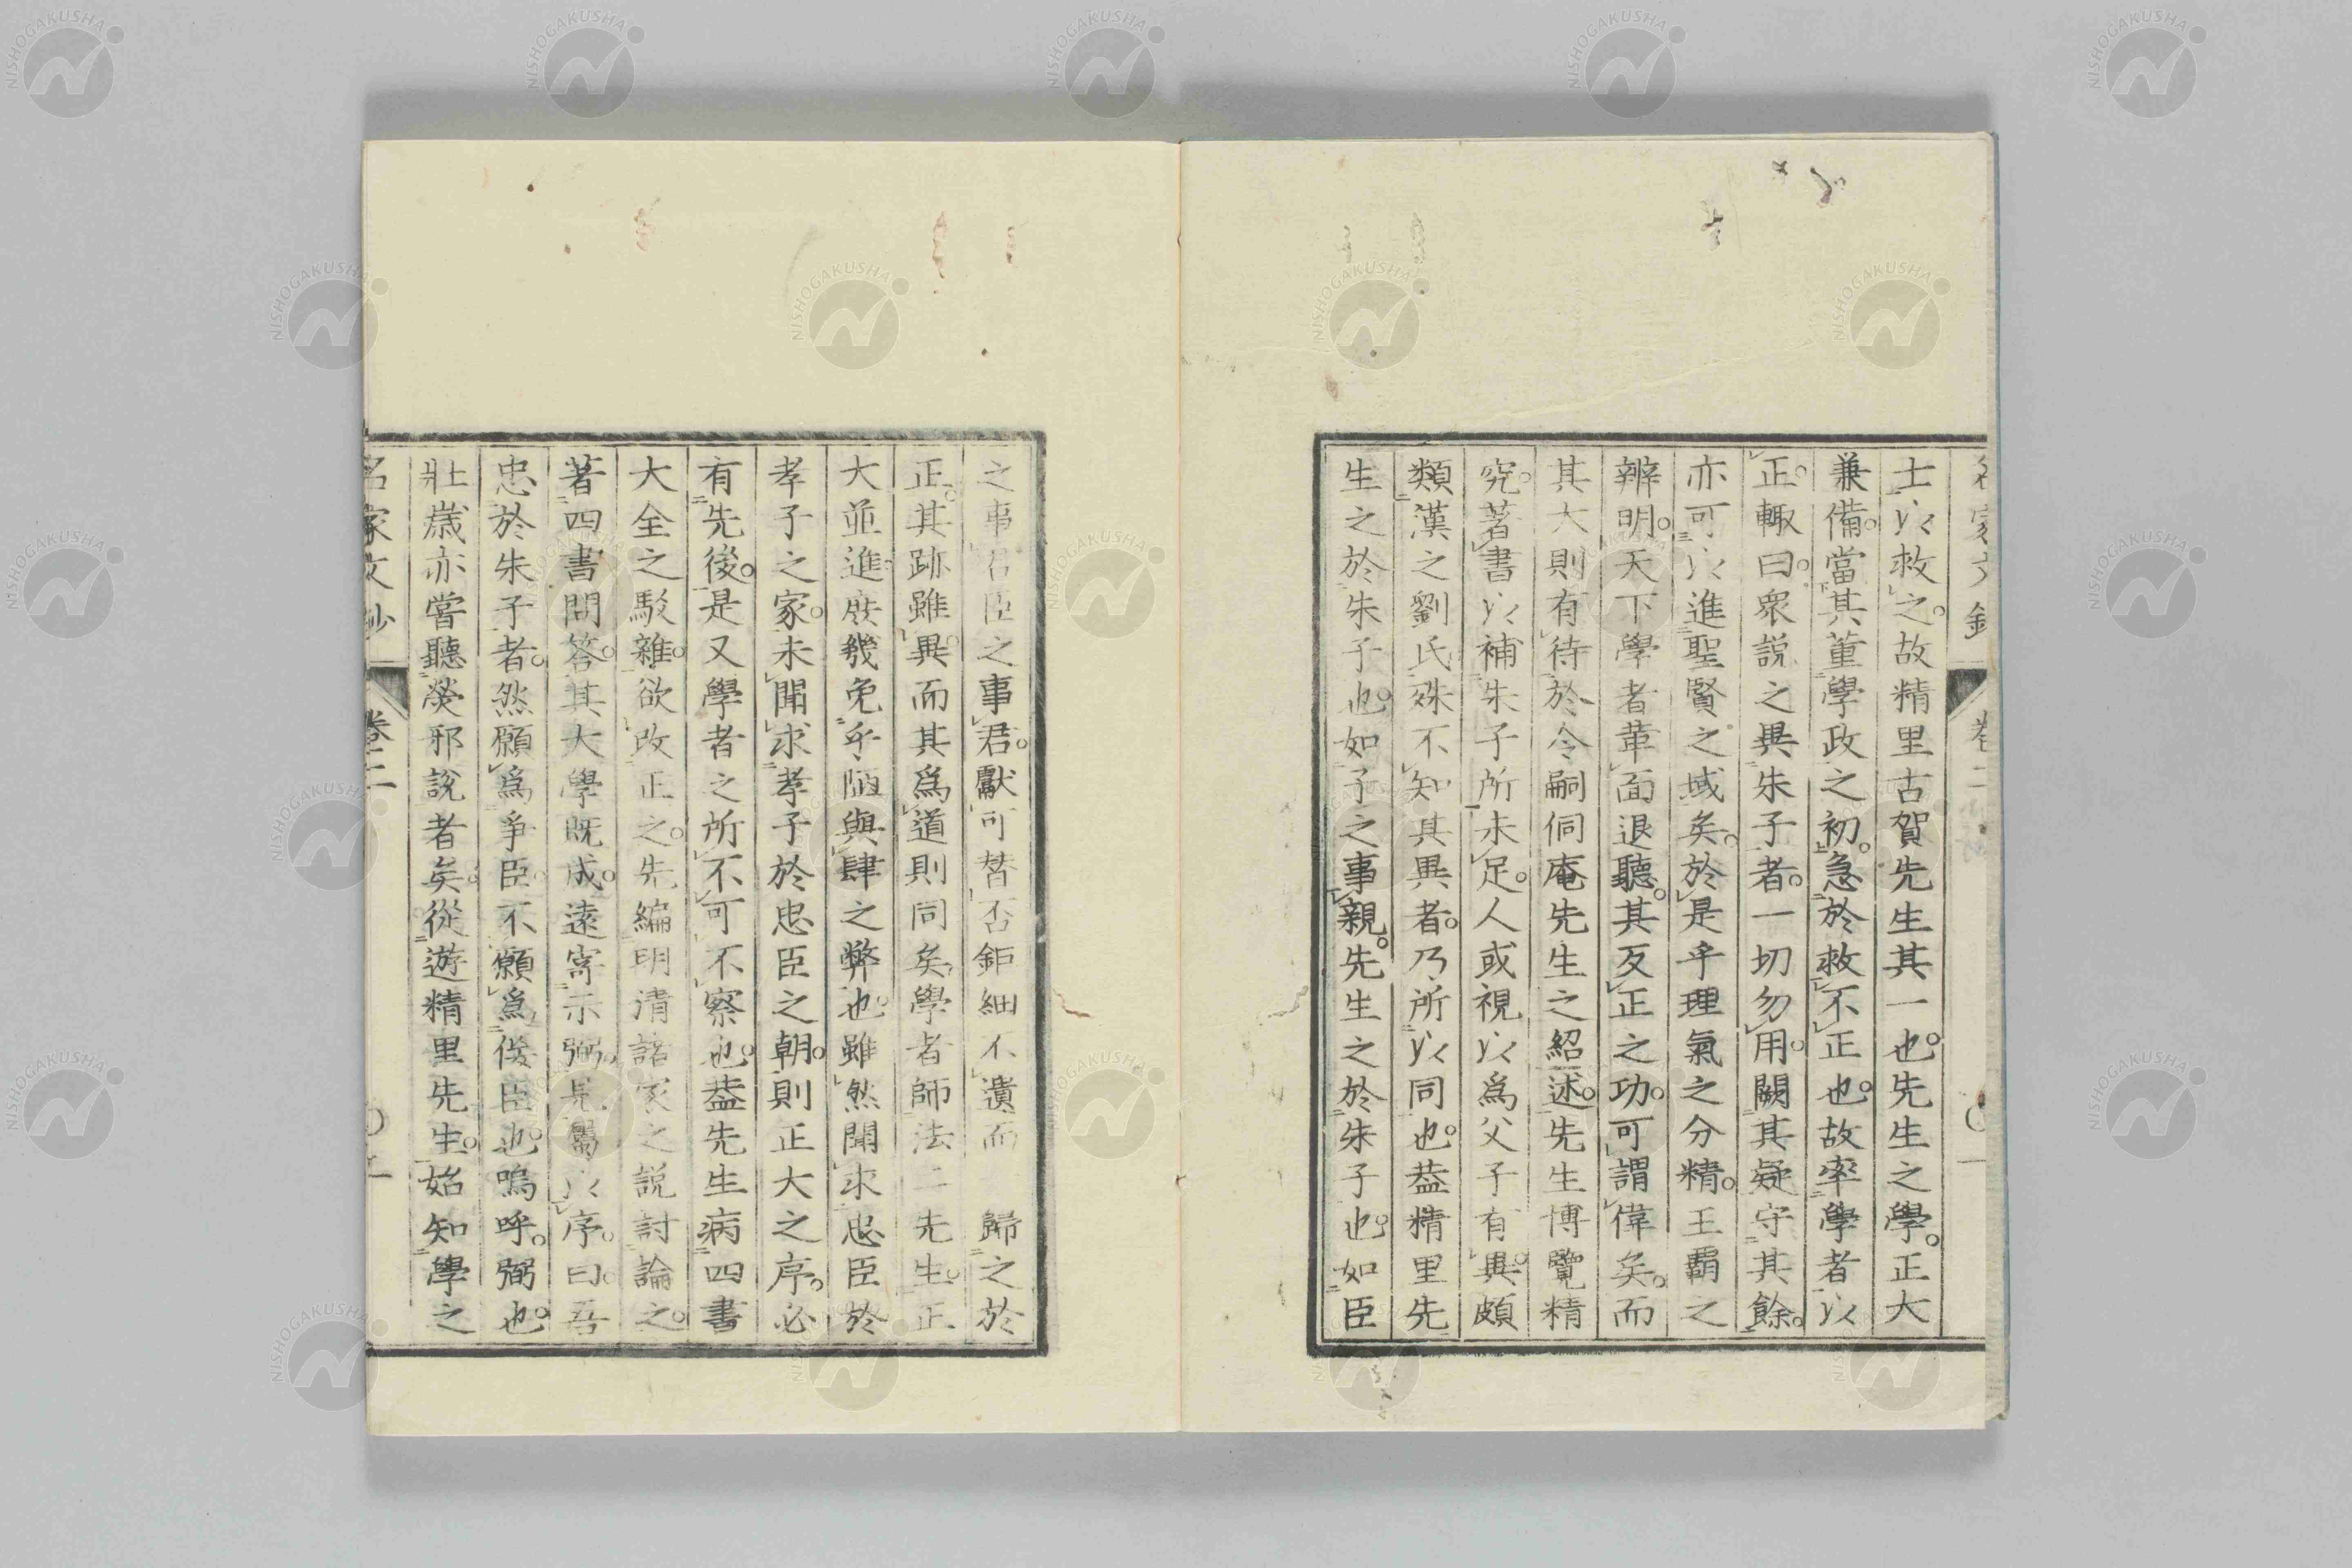 士以救之。故精里古賀先生其一也。先生之學。正大
兼備。當其董學政之初。急於救不正也。故率學者以
正。輙曰。衆説之異朱子者。一切勿用。闕其疑守其餘。
亦可以進聖賢之域矣。於是乎理氣之分精。王霸之
辨明。天下學者革面退聽。其反正之功。可謂偉矣。而
其大則有待於令嗣侗庵先生之紹述。先生博覽精
究。著書以補朱子所未足。人或視以爲父子有異。頗
類漢之劉氏殊不知其異者。乃所以同也。葢精里先
生之於朱子也。如子之事親。先生之於朱子也。如臣
之事君。臣之事君。獻可替否鉅細不遺而 歸之於
正。其跡雖異。而其爲道則同矣。學者師法二先生。正
大並進。庶幾免乎陋與肆之弊也。雖然聞求忠臣於
孝子之家。未聞求孝子於忠臣之朝。則正大之序。必
有先後。是又學者之所不可不察也。葢先生病四書
大全之駁雜。欲改正之。先編明清諸家之説討論之。
著四書問答。其大學既成。遠寄示弼。見屬以序。曰。吾
忠於朱子者。然願爲爭臣。不願爲佞臣也。嗚呼。弼也。
壯歳亦嘗聽熒邪説者矣。從遊精里先生。始知學之
名家文鈔
卷二